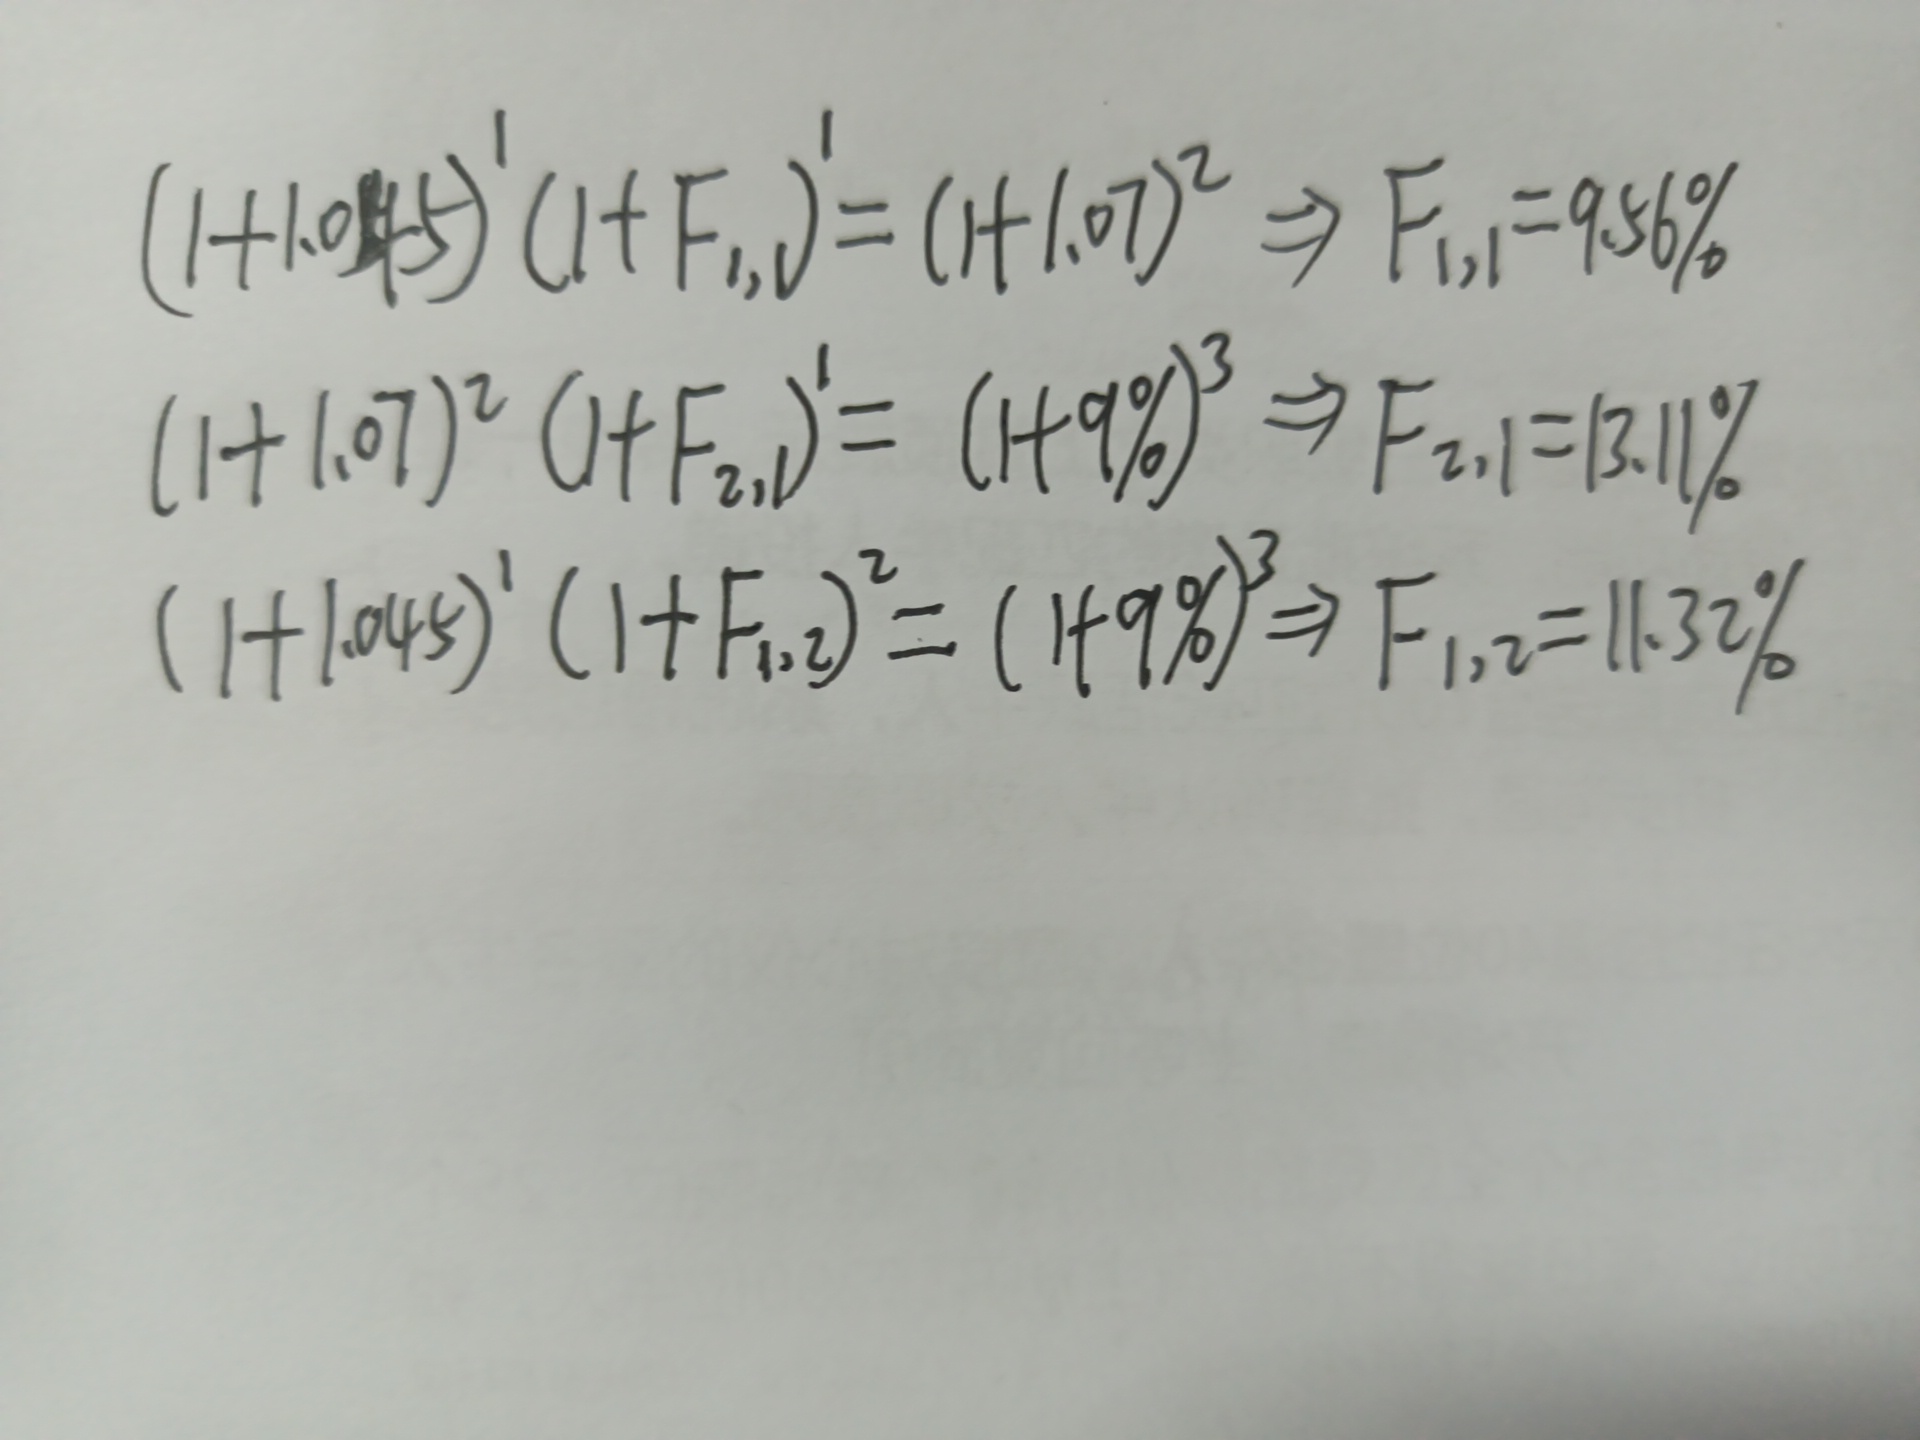 (1+1.045)¹(1+F₁,₁)¹=(1+1.07)²⇒F₁,₁=9.56%
(1+1.07)²(1+F₂,₁)¹=(1+9%)³⇒F₂,₁=13.11%
(1+1.045)¹(1+F₁,₂)²=(1+9%)³⇒F₁,₂=11.32%